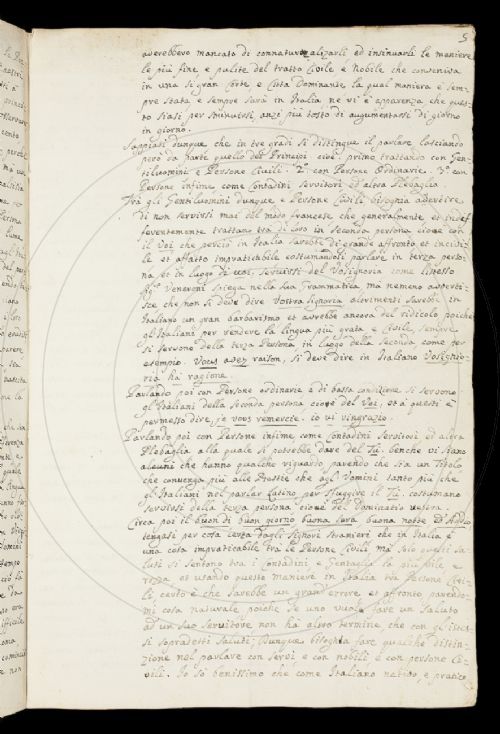 5
averebbero mancato di connaturalizarli ed insinuarli le maniere
le più fine e pulite del tratto Civile e Nobile che conveniva
in una si gran Corte e Citta Dominante la qual maniera è sem-
pre stata e sempre sarà in Italia ne vi è apparenza che ques-
to siasi per sminuirsi anzi più tosto di augumentarsi di giorno
in giorno.
Sappiasi dunque che in tre gradi si distingue il parlare lasciando
però da parte quello dei Principi cioè primo trattando con Gen-
tiluomini e Persone Civili 2º con Persone Ordinarie 3º con
Persone infime come Contadini Servitori ed altra Plebaglia.
Trà gli Gentiluomini dunque e Persone Civili bisogna avvertire
di non servirsi mai del modo francese che generalmente et indef-
ferentemente trattano tra di loro in seconda persona cioue con
il Voi che perciò in Italia sarebbe di grande affronto et incivi-
le et affatto impratichabile costumandosi parlare in terza perso-
na et in luogo di voi servirsi del Vosignoria come l'istesso
Sigr Veneroni spiega nella sua Grammatica ma nemeno avverti-
sce che non si deve dire Vostra Signoria altrimenti sarebbe in
Italiano un gran barbarismo et averebbe ancora del ridicolo poiche
gl'Italiani per rendere la lingua più grata e Civile, sempre
si servono della terza Persona in luogo della seconda come per
esempio. Vous avez raison, si deve dire in Italiano Vosigno-
ria hà ragione.
Parlando poi con Persone ordinarie e di bassa condizione si servono
gl'Italiani della seconda persona cioue del Voi, et à questi è
permesso dire, je vous remercie. io vi ringrazio.
Parlando poi con Persone infime come Contadini Servitori ed altra
Plebaglia alla quale si potrebbe dare del Tù benche vi siano
alcuni che hanno qualche riguardo parendo che sia un Titolo
che convenga più alle Bestie che agl'Uomini tanto più che
gl'Italiani nel parlar Latino per sfuggire il Tù, costumano
servirsi della terza persona cioue del
Circa poi il buon dì buon giorno buona sera buona notte
per cosa certa dagli Signori Stranieri che in Italia è
una cosa impraticabile tra le Persone Civili ma solo questi Sa-
luti si sentono tra i Contadini e Gentaglia la più vile e
rozza et usando queste maniere in Italia tra Persone Civi-
li certo è che sarebbe un grand'errore et affronto parendo-
mi cosa naturale poiche se uno vuole fare un Saluto
ad un suo Servitore non ha altro termine che con gl'istes-
si sopradetti Saluti; Dunque bisogna fare qualche distin-
zione nel parlare con Servi e con nobili e con persone Ci-
vili. Io sò benissimo che come Italiano natiuo, e pratico